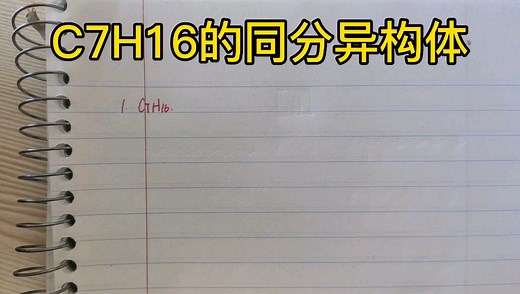 C7H16的同分异构体
1. C7H16.